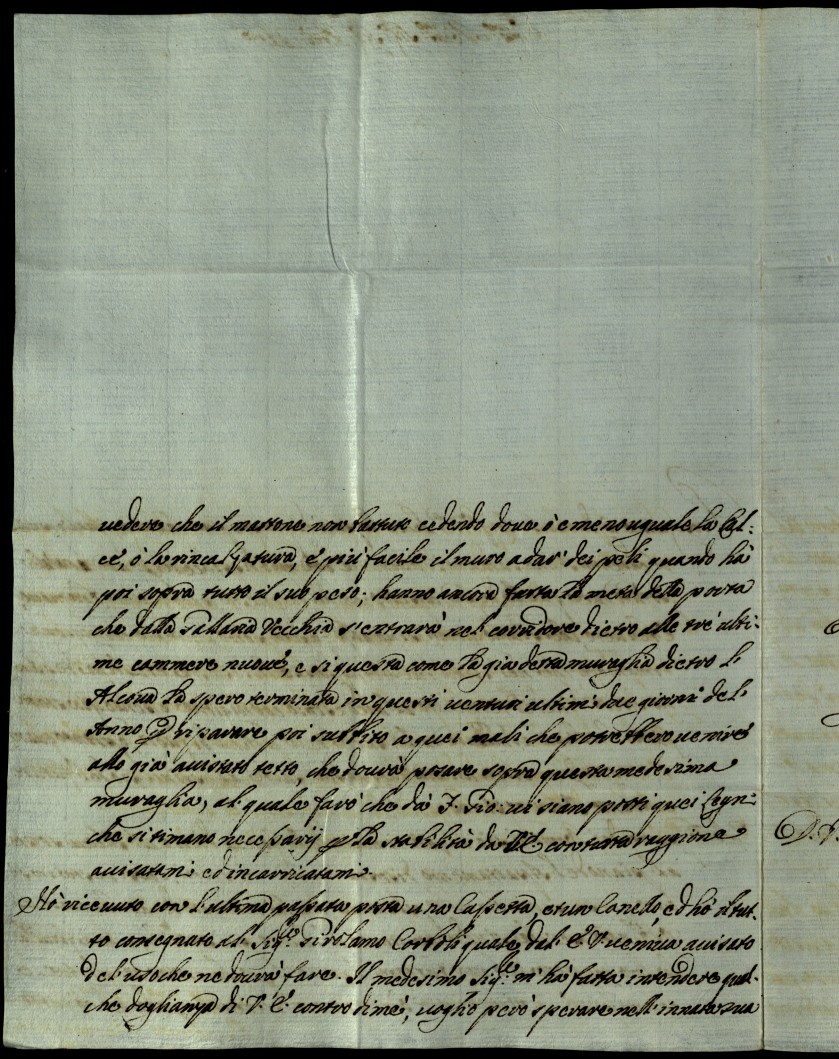 vedere che il mattone non battuto cedendo dove è meno uguale la Cal:
ce, ò la rincalzatura, è più facile il muro a dar' dei peli quando hà
poi sopra tutto il suo peso; hanno ancora fatta la metà della porta
che dalla Sallaria Vecchia s'entrarà nel corridore dietro alle trè ulti:
me cammere nuove, e si questa come la già detta muraglia dietro l'
Alcova la spero terminata in questi venturi ultimi due giorni del
Anno p riparare poi subbito a quei mali che potrebbero venire
allo già avisato tetto, che dovrà posare sopra questa medesima
muraglia, al quale farò che dà F. Gio: vi siano posti quei Legni
che si stimano necessarij p la stabilità da VE con tanta raggione
avisatami ed incarricatami.
Hò ricevuto con l'ultima passata posta una Cassetta, et un Canello, ed hò il tut:
to consegnato al Sigre Girolamo Corboli quale dal E. V. veniva avisato
del uso che ne dovrà fare. Il medesimo Sigre m'hà fatto intendere qual:
che doglianza di V. E. contro di mè, voglio però sperare nell'innata sua